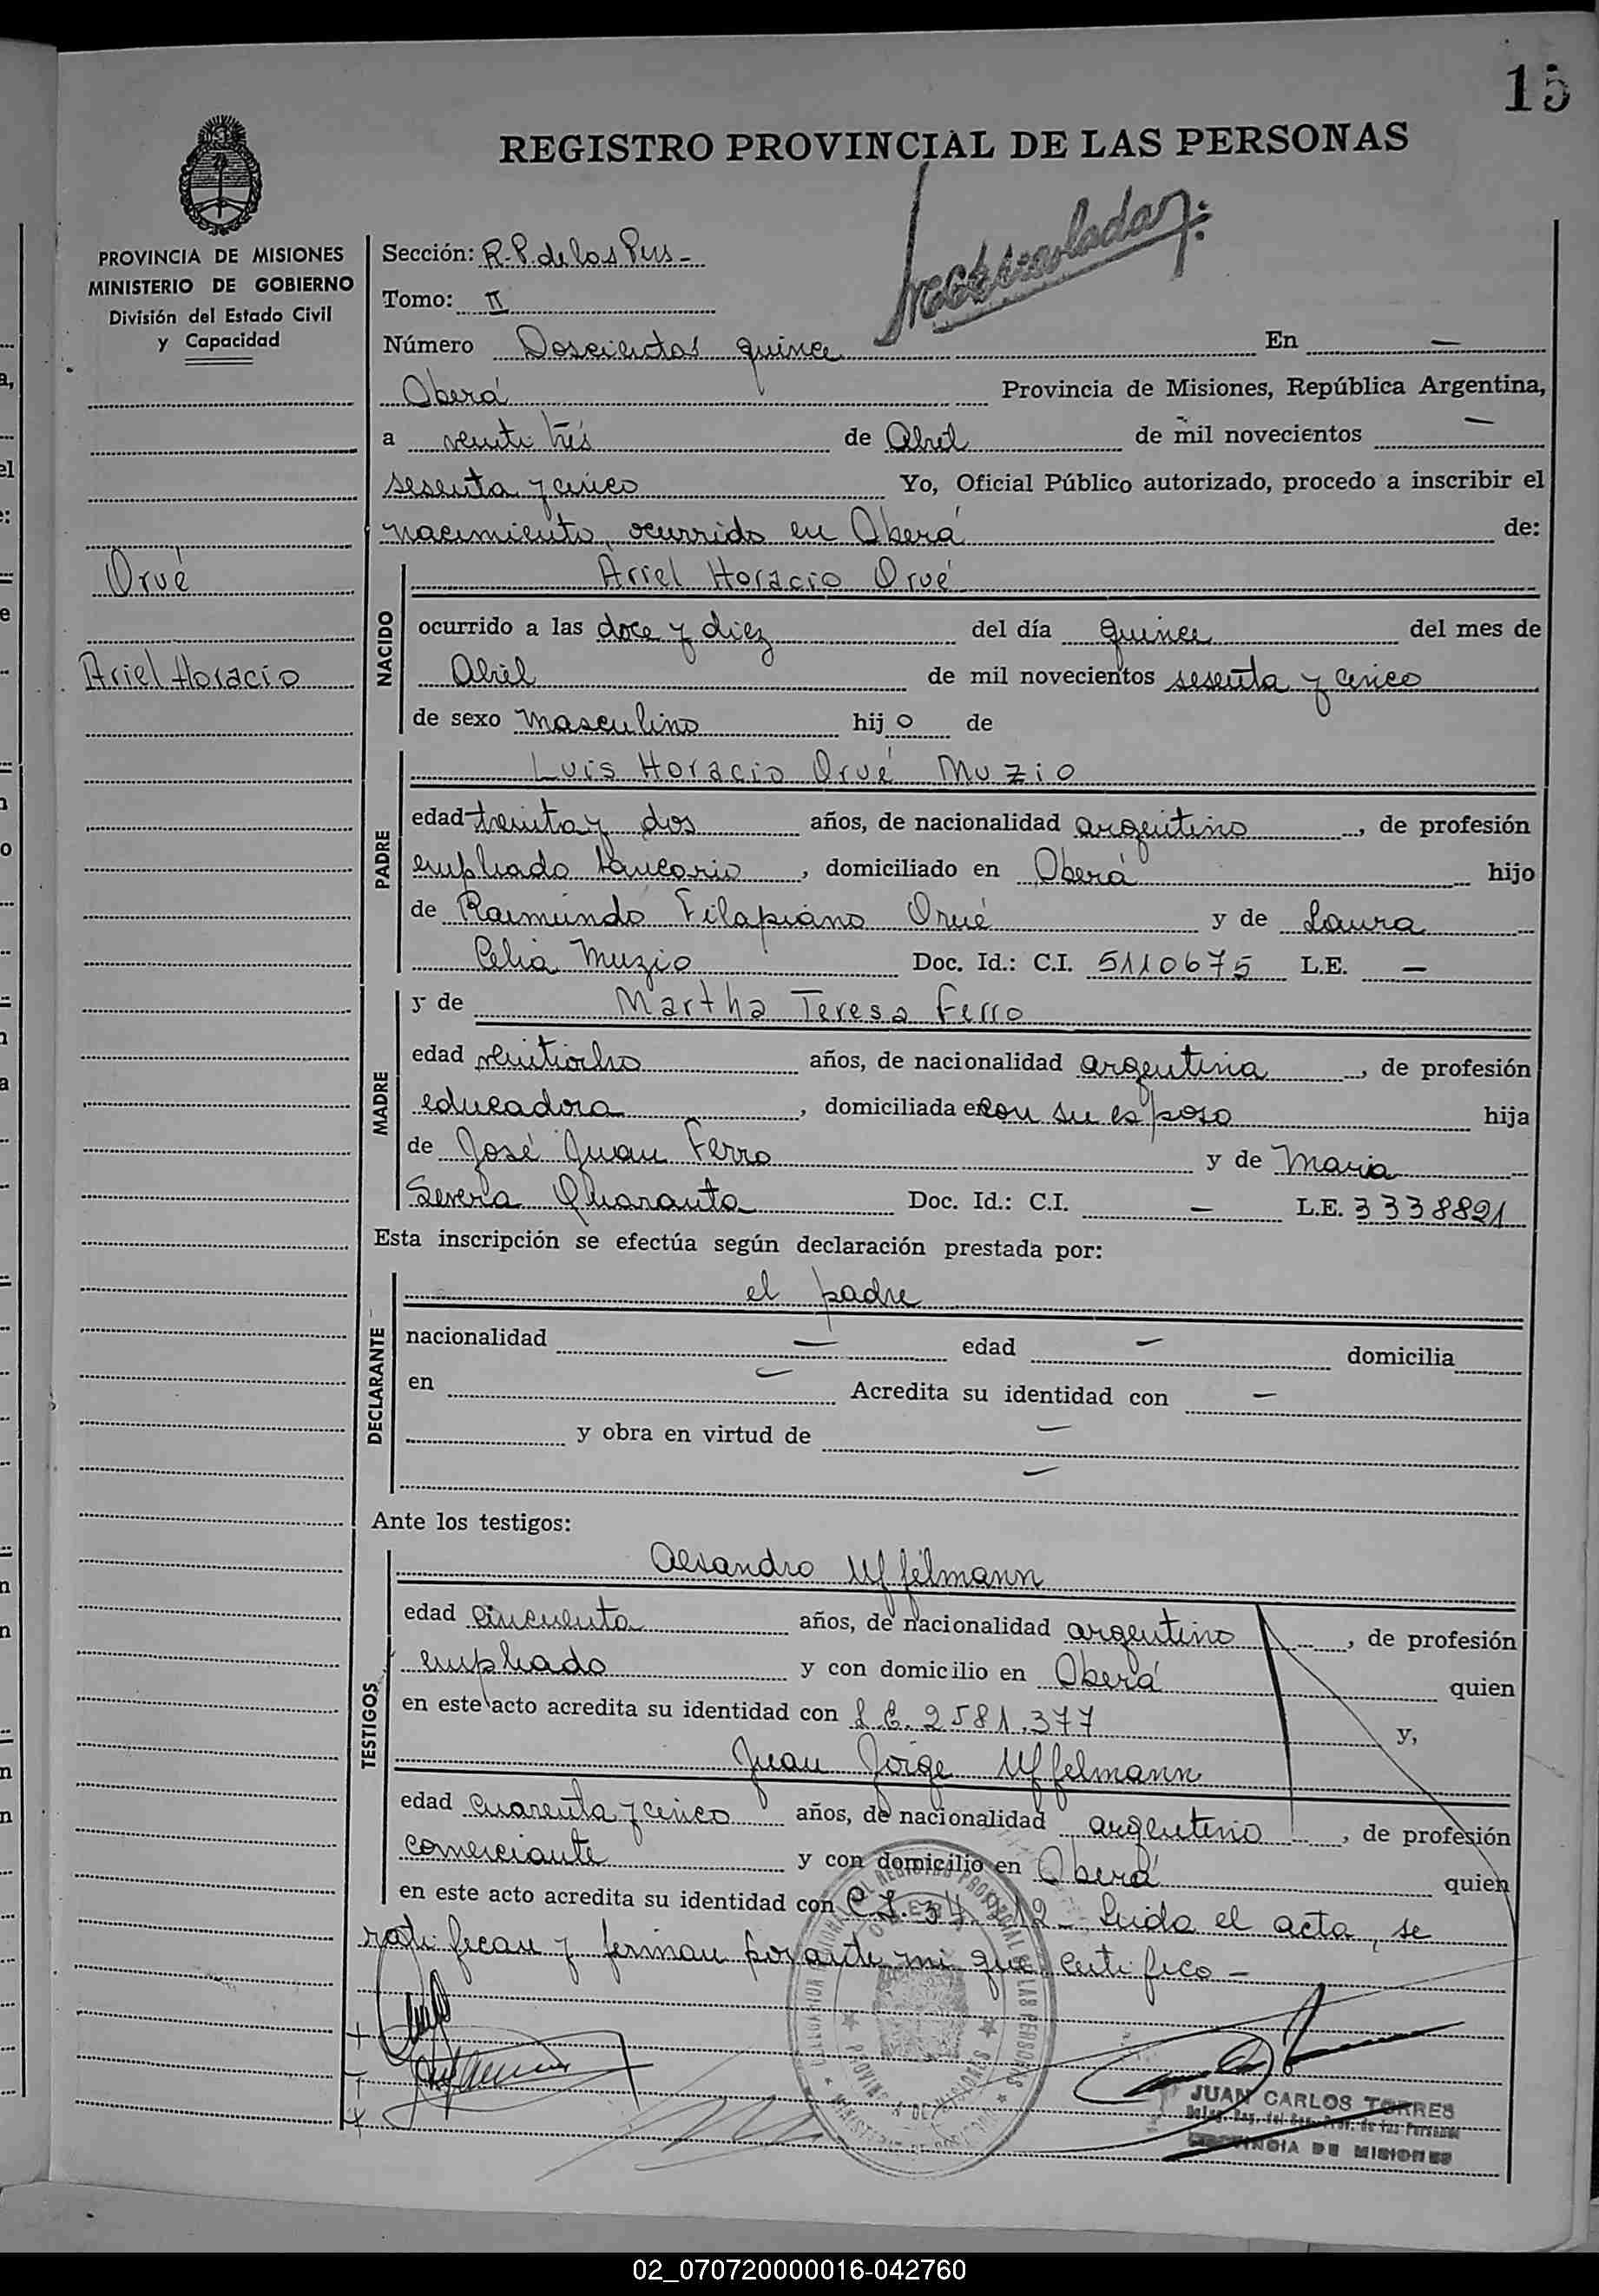 15
REGISTRO PROVINCIAL DE LAS PERSONAS
PROVINCIA DE MISIONES
MINISTERIO DE GOBIERNO
División del Estado Civil
y Capacidad
Orvé
Ariel Horacio
Sección: R.P. de los Pers -
Tomo: II
Número Doscientos quince En —
Oberá Provincia de Misiones, República Argentina,
a veinti trés de Abril de mil novecientos —
sesenta y cinco Yo, Oficial Público autorizado, procedo a inscribir el
nacimiento, ocurrido en Oberá de:
NACIDO
Ariel Horacio Orvé
ocurrido a las doce y diez del día quince del mes de
Abril de mil novecientos sesenta y cinco
de sexo masculino hijo de
PADRE
Luis Horacio Orvé Muzio
edad treinta y dos años, de nacionalidad argentino, de profesión
empleado bancario, domiciliado en Oberá hijo
de Raimundo Filapiano Orué y de Laura
Celia Muzio Doc. Id.: C.I. 5110675 L.E. —
MADRE
y de Martha Teresa Ferro
edad veintiocho años, de nacionalidad argentina, de profesión
educadora, domiciliada con su esposo hija
de José Juan Ferro y de Maria
Severa Quaranta Doc. Id.: C.I. — L.E. 3338821
Esta inscripción se efectúa según declaración prestada por:
DECLARANTE
el padre
nacionalidad — edad — domicilia
en — Acredita su identidad con —
y obra en virtud de —
—
Ante los testigos:
TESTIGOS
Alsandro Uffelmann
edad cincuenta años, de nacionalidad argentino, de profesión
empleado y con domicilio en Oberá quien
en este acto acredita su identidad con L.E. 2581.377 y,
Juan Jorge Uffelmann
edad cuarenta y cinco años, de nacionalidad argentino, de profesión
comerciante y con domicilio en Oberá quien
en este acto acredita su identidad con C.I. 12 - Leida el acta, se
ratifican y firman por ante mi que certifico -
JUAN CARLOS TORRES
PROVINCIA DE MISIONES
02_070720000016-042760